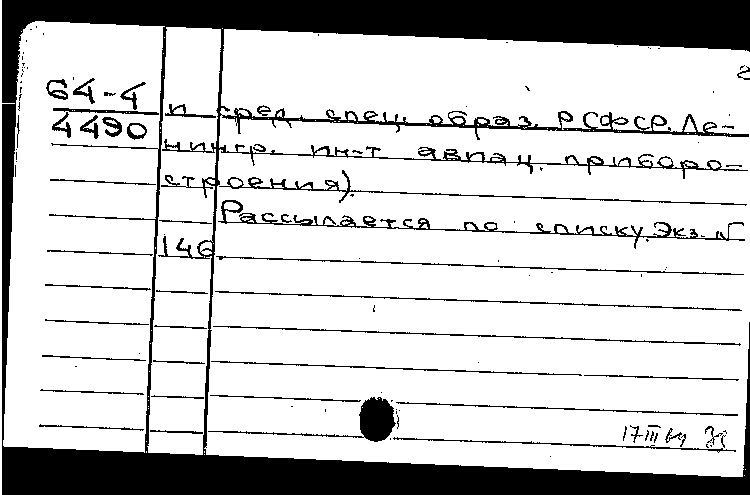 2
64-4
4490
и сред. спец. образ. РСФСР. Ле-
нингр. ин-т авиац. приборо-
строения).
Рассылается по списку. Экз. №
146.
17 III 64